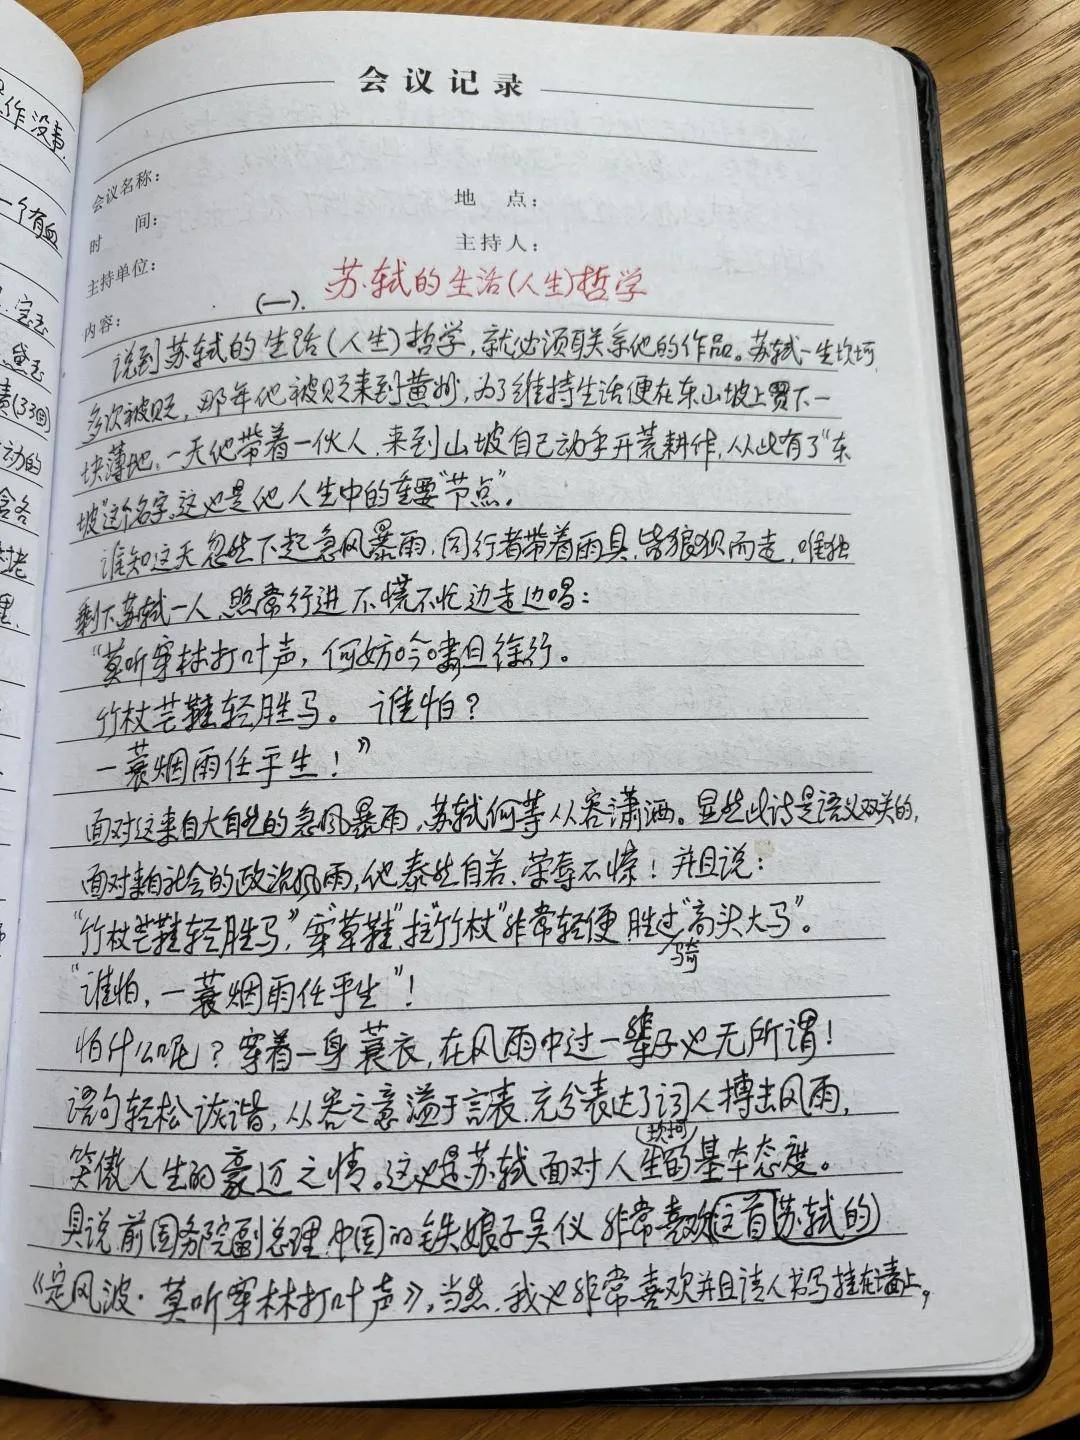 会议记录
会议名称：
地　点：
时　间：
主持人：
主持单位：
苏轼的生活(人生)哲学
(一).
内容：
说到苏轼的生活(人生)哲学,就必须联系他的作品。苏轼一生坎坷,
多次被贬,那年他被贬来到黄州,为了维持生活便在东山坡上买下一
块薄地,一天他带着一伙人,来到山坡自己动手开荒耕作,从此有了"东
坡"这个名字。这也是他人生中的重要"节点"。
谁知这天忽然下起急风暴雨,同行者带着雨具,皆狼狈而走,唯独
剩下苏轼一人,照常行进不慌不忙边走边唱：
"莫听穿林打叶声,何妨吟啸且徐行。
竹杖芒鞋轻胜马。 谁怕？
一蓑烟雨任平生！"
面对这来自大自然的急风暴雨,苏轼何等从容潇洒。显然此诗是语义双关的,
面对来自社会的政治风雨,他泰然自若、荣辱不惊！并且说：
"竹杖芒鞋轻胜马",穿"草鞋",拄"竹杖"非常轻便胜过骑"高头大马"。
"谁怕,一蓑烟雨任平生"！
怕什么呢？穿着一身蓑衣,在风雨中过一辈子也无所谓！
语句轻松诙谐,从容之意溢于言表,充分表达了词人搏击风雨,
笑傲人生的豪迈之情。这也是苏轼面对人生坎坷的基本态度。
具说前国务院副总理,中国的铁娘子吴仪非常喜欢这首苏轼的
《定风波·莫听穿林打叶声》,当然,我也非常喜欢并且请人书写挂在墙上,
作没事,
一个有血
宝玉
(33回)
动的